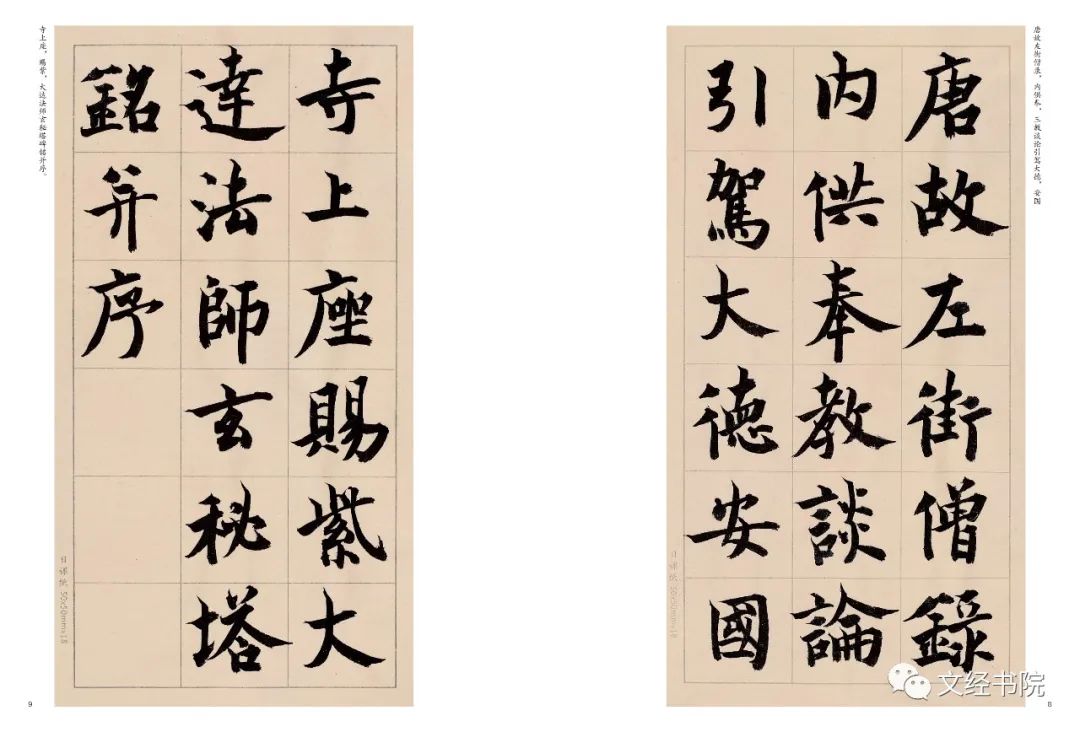 唐故左街僧录，内供奉，三教谈论引驾大德，安国
唐故左街僧錄
内供奉教談論
引駕大德安國
日课纸 50x50mmx18
文经书院
8
寺上座賜紫大
達法師玄秘塔
銘并序
日课纸 50x50mmx18
寺上座，赐紫，大达法师玄秘塔碑铭并序。
9